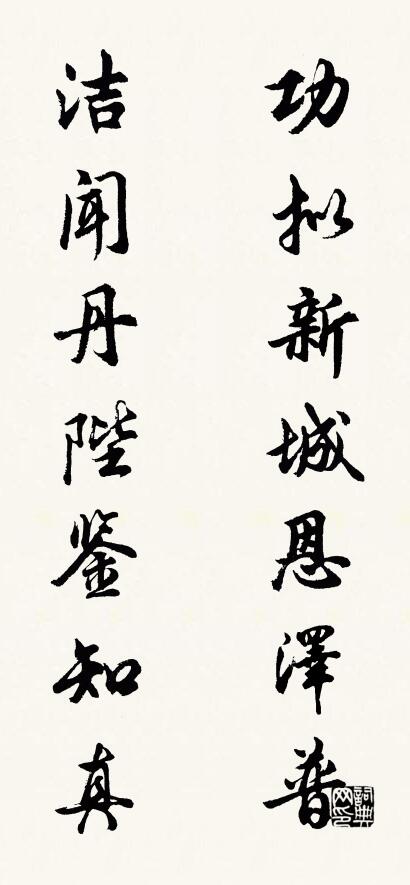 功拟新城恩澤普
洁闻丹陛鉴知真
詞典网